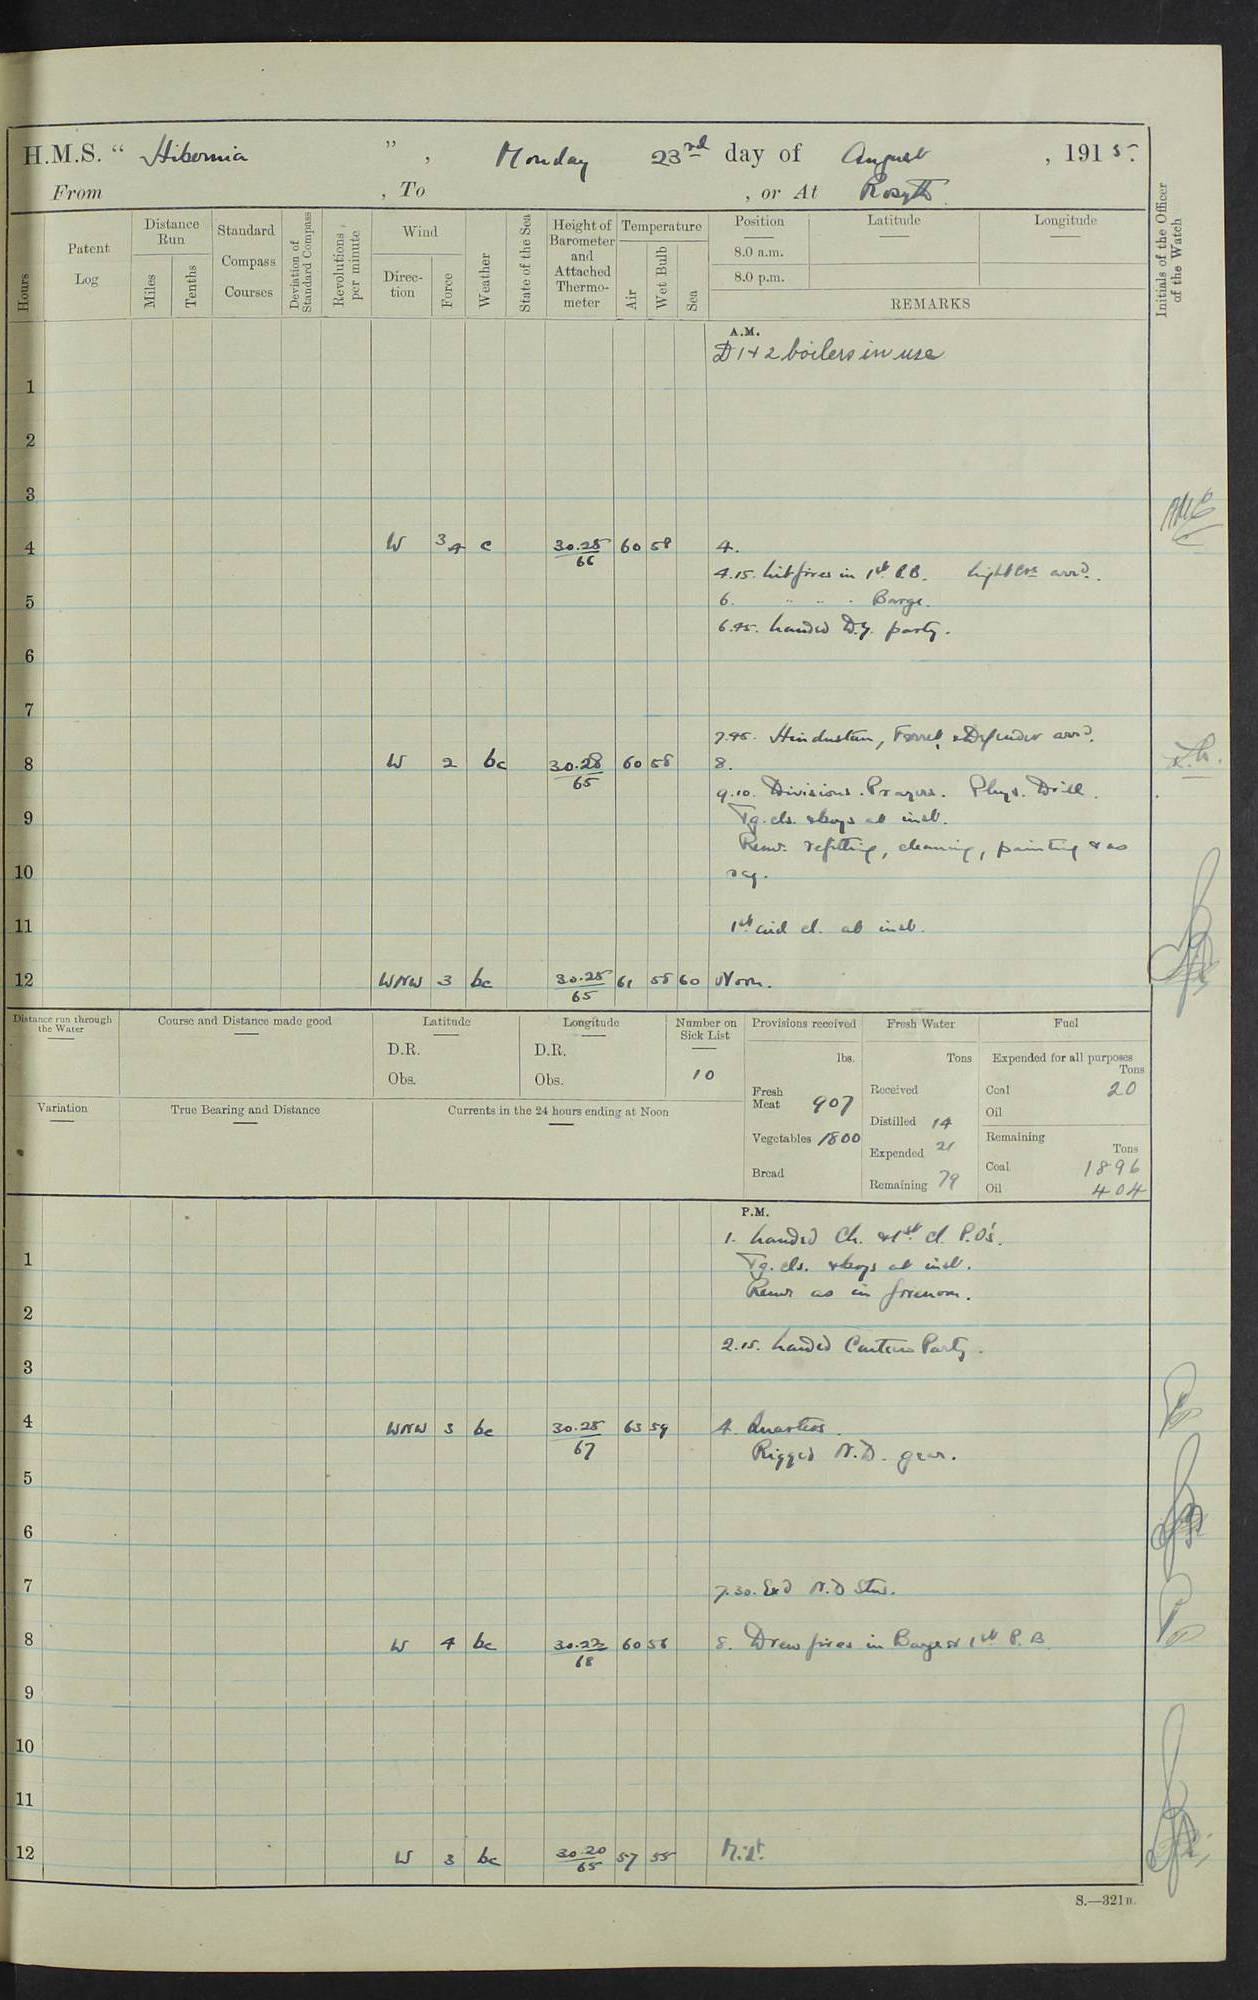 H.M.S. “ Hibernia ” , Monday 23rd day of August , 1915.
From , To , or At Rosyth.
Hours
Patent Log
Distance Run
Miles
Tenths
Standard Compass Courses
Deviation of Standard Compass
Revolutions per minute
Wind
Direction
Force
Weather
State of the Sea
Height of Barometer and Attached Thermometer
Temperature
Air
Wet Bulb
Sea
Position
8.0 a.m.
8.0 p.m.
Latitude
Longitude
REMARKS
Initials of the Officer of the Watch
A.M.
D 1 & 2 boilers in use
1
2
3
4 W 3 4 c 30.28 66 60 58 4.
4.15. Lit fires in 1st P.B. arrd.
5
6. .. .. . Barge.
6.45. Landed D.Y. party.
6
7
7.45. Hindustan, Ferret, & Defender arrd.
8 W 2 bc 30.28 65 60 58 8.
9.10. Divisions. Prayers. Phys. Drill.
9 Tg. cls. & boys at inst.
Remr. refitting, cleaning, painting & as
10 req.
11 1st aid cl. at inst.
12 WNW 3 bc 30.28 65 61 58 60 Noon.
Distance run through the Water
Course and Distance made good
Latitude
D.R.
Obs.
Longitude
D.R.
Obs.
Number on Sick List
10
Provisions received
lbs.
Fresh Meat 907
Vegetables 1800
Bread
Fresh Water
Tons
Received
Distilled 14
Expended 21
Remaining 79
Fuel
Expended for all purposes
Tons
Coal 20
Oil
Remaining
Tons
Coal 1896
Oil 404
Variation
True Bearing and Distance
Currents in the 24 hours ending at Noon
P.M.
1. Landed Ch. & 1st cl. P.O's.
1 Tg. cls. & boys at inst.
Remr as in forenoon.
2
2.15. Landed Canteen Party.
3
4 WNW 3 bc 30.28 67 63 59 4. Quarters.
Rigged N.D. gear.
5
6
7
7.30. Exd N.D Stns.
8 W 4 bc 30.22 68 60 56 8. Drew fires in Barge & 1st P.B.
9
10
11
12 W 3 bc 30.20 65 57 55 Midt.
S.—321B.